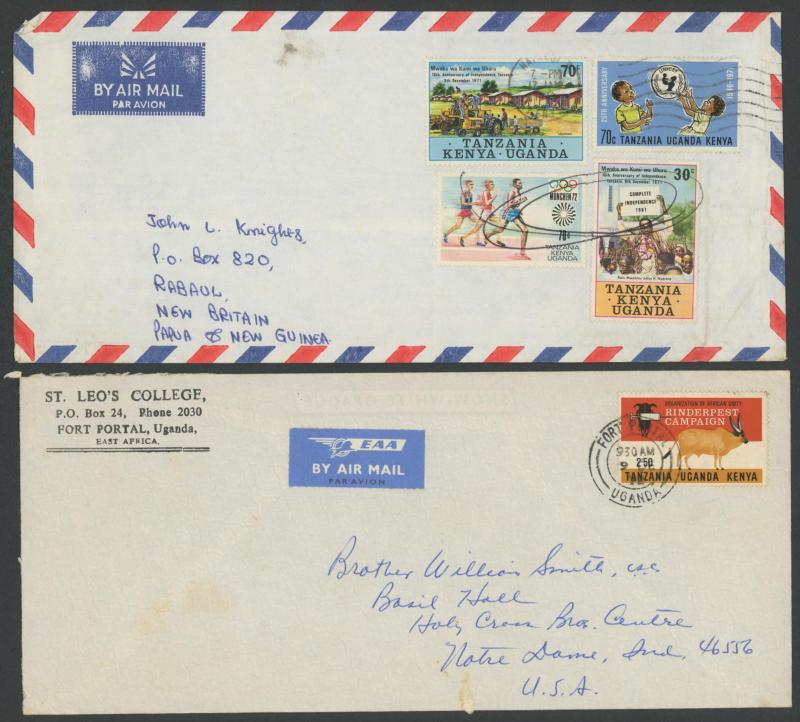 BY AIR MAIL
PAR AVION
Mwaka wa Kumi wa Uhuru
10th Anniversary of Independence, Tanzania
9th December 1971
70c
TANZANIA
KENYA · UGANDA
7 - PM
25TH ANNIVERSARY
UNICEF
1946-1971
70c TANZANIA UGANDA KENYA
MÜNCHEN 72
70c
TANZANIA
KENYA
UGANDA
Mwaka wa Kumi wa Uhuru
10th Anniversary of Independence
Tanzania, 9th December 1971
30c
COMPLETE
INDEPENDENCE
1961
TANZANIA
· KENYA ·
UGANDA
John L. Knighes,
P.O. Box 820,
RABAUL,
NEW BRITAIN
PAPUA & NEW GUINEA.
ST. LEO'S COLLEGE,
P.O. Box 24, Phone 2030
FORT PORTAL, Uganda,
EAST AFRICA.
EAA
BY AIR MAIL
PAR AVION
ORGANIZATION OF AFRICAN UNITY
RINDERPEST
CAMPAIGN
2'50
TANZANIA UGANDA KENYA
FORT PORTAL
930AM
UGANDA
Brother William Smith, csc
Basil Hall
Holy Cross Bros. Centre
Notre Dame, Ind. 46556
U.S.A.